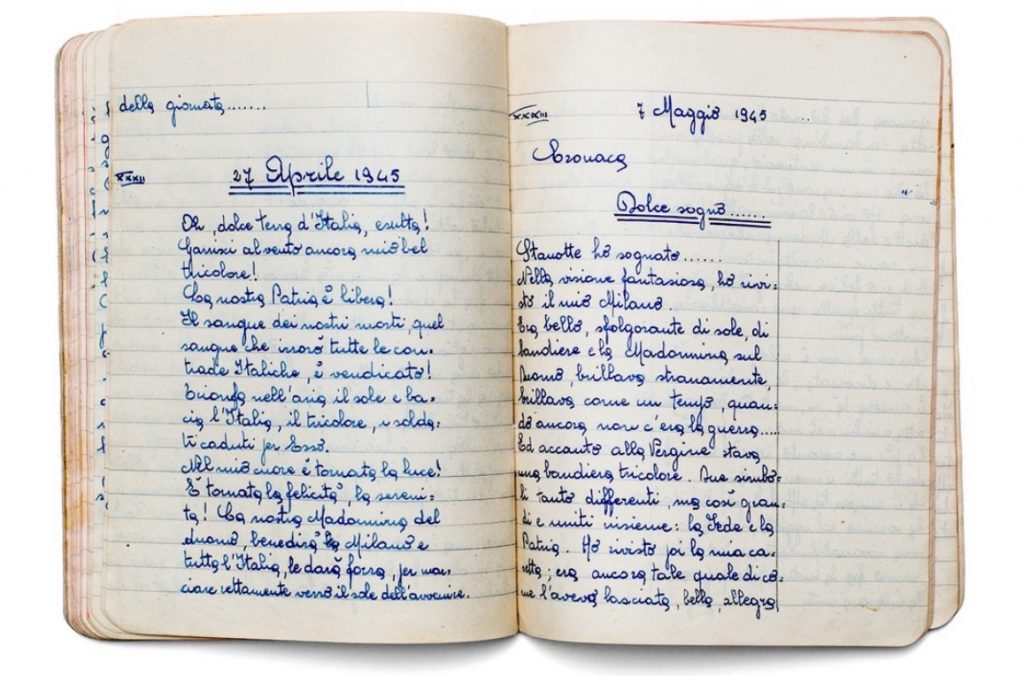 della giornata.......
XXXII
27 Aprile 1945
Oh, dolce terra d'Italia, esulta!
Garrisci al vento ancora mio bel
tricolore!
La nostra Patria è libera!
Il sangue dei nostri morti, quel
sangue che irrorò tutte le con-
trade Italiche, è vendicato!
Trionfa nell'aria il sole e ba-
cia l'Italia, il tricolore, i solda-
ti caduti per Esso.
Nel mio cuore è tornata la luce!
È tornata la felicità, la sereni-
tà! La nostra Madonnina del
duomo, benedirà la Milano e
tutta l'Italia, le darà forza, per mar-
ciare rettamente verso il sole dell'avvenire.
XXXIII
7 Maggio 1945
Cronaca
Dolce sogno......
Stanotte ho sognato......
Nella visione fantasiosa, ho rivi-
sto il mio Milano.
Era bello, sfolgorante di sole, di
bandiere e la Madonnina sul
Duomo, brillava stranamente,
brillava come un tempo, quan-
do ancora non c'era la guerra.....
Ed accanto alla Vergine stava
una bandiera tricolore. Due simbo-
li tanto differenti, ma così gran-
di e uniti insieme: la Fede e la
Patria. Ho rivisto poi la mia ca-
setta; era ancora tale quale di co-
me l'avevo lasciata, bella, allegra